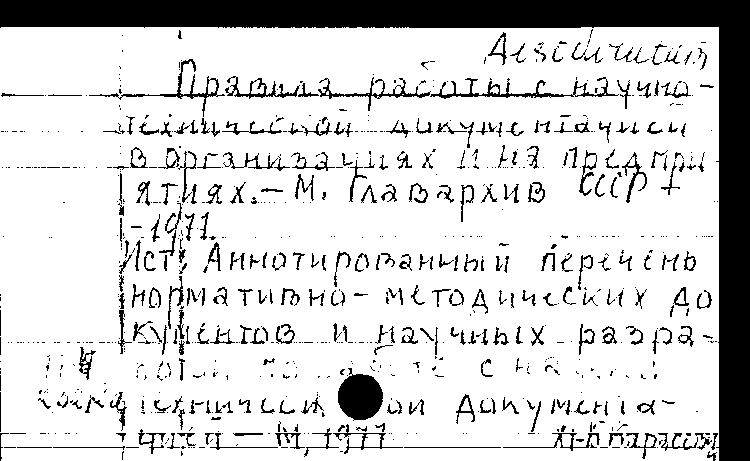 Правила работы с научно-
технической документацией
в организациях и на предпри
ятиях.— М. Главархив СССР
-1971.
Ист: Аннотированный перечень
нормативно- методических до
кументов и научных разра-
ботой по работе с научно
технической документа-
цией — М, 1977